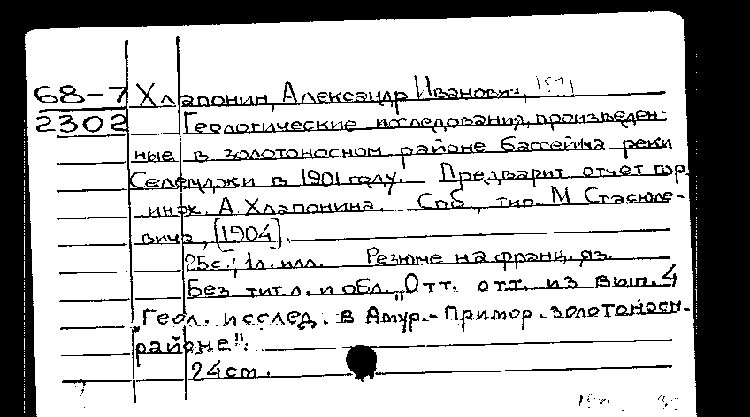 68-7 Хлапонин, Александр Иванович, 1871
2302 Геологические исследования, произведен-
ные в золотоносном районе бассейна реки
Селемджи в 1901 году. Предварит. отчет гор.
инж. А. Хлапонина. Спб., тип. М. Стасюле-
вича, [1904].
25с.; 1л. илл. Резюме на франц. яз.
Без тит. л. и обл. „Отт. отт. из вып. 4
„Геол. исслед. в Амур.-Примор. золотоносн.
районе".
24см.